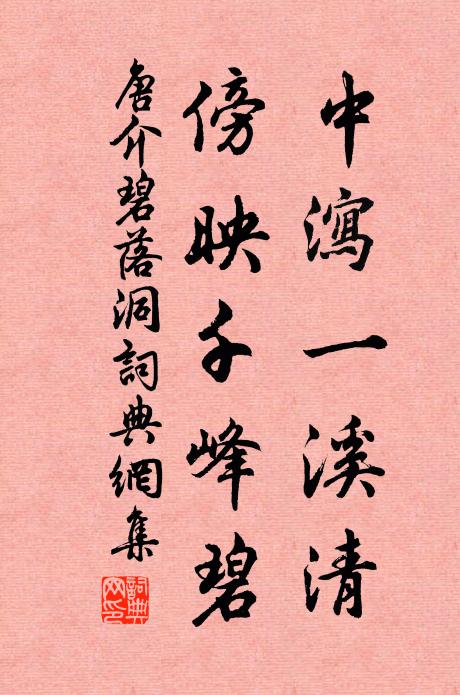 中瀉一溪清
傍映千峰碧
唐介碧落洞詞典網集
詞典网印